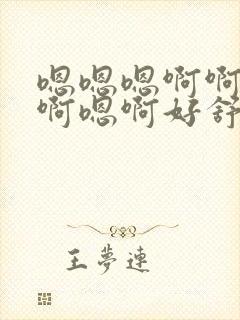 嗯嗯嗯啊啊
啊嗯啊好舒
王梦连